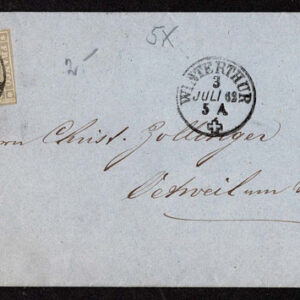 2.-
5X
WINTERTHUR
3
JULI 62
5 A
Christ. Zollinger
Oetweil am